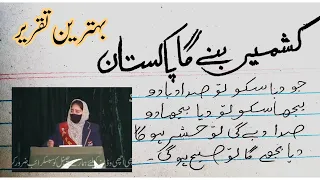 بہترین تقریر
کشمیر بنے گا پاکستان
جو دبا سکو تو صدا دبا دو
بجھا سکو تو دیا بجھا دو
صدا دبے گی تو حشر ہوگا
دیا بجھے گا تو صبح ہوگی۔